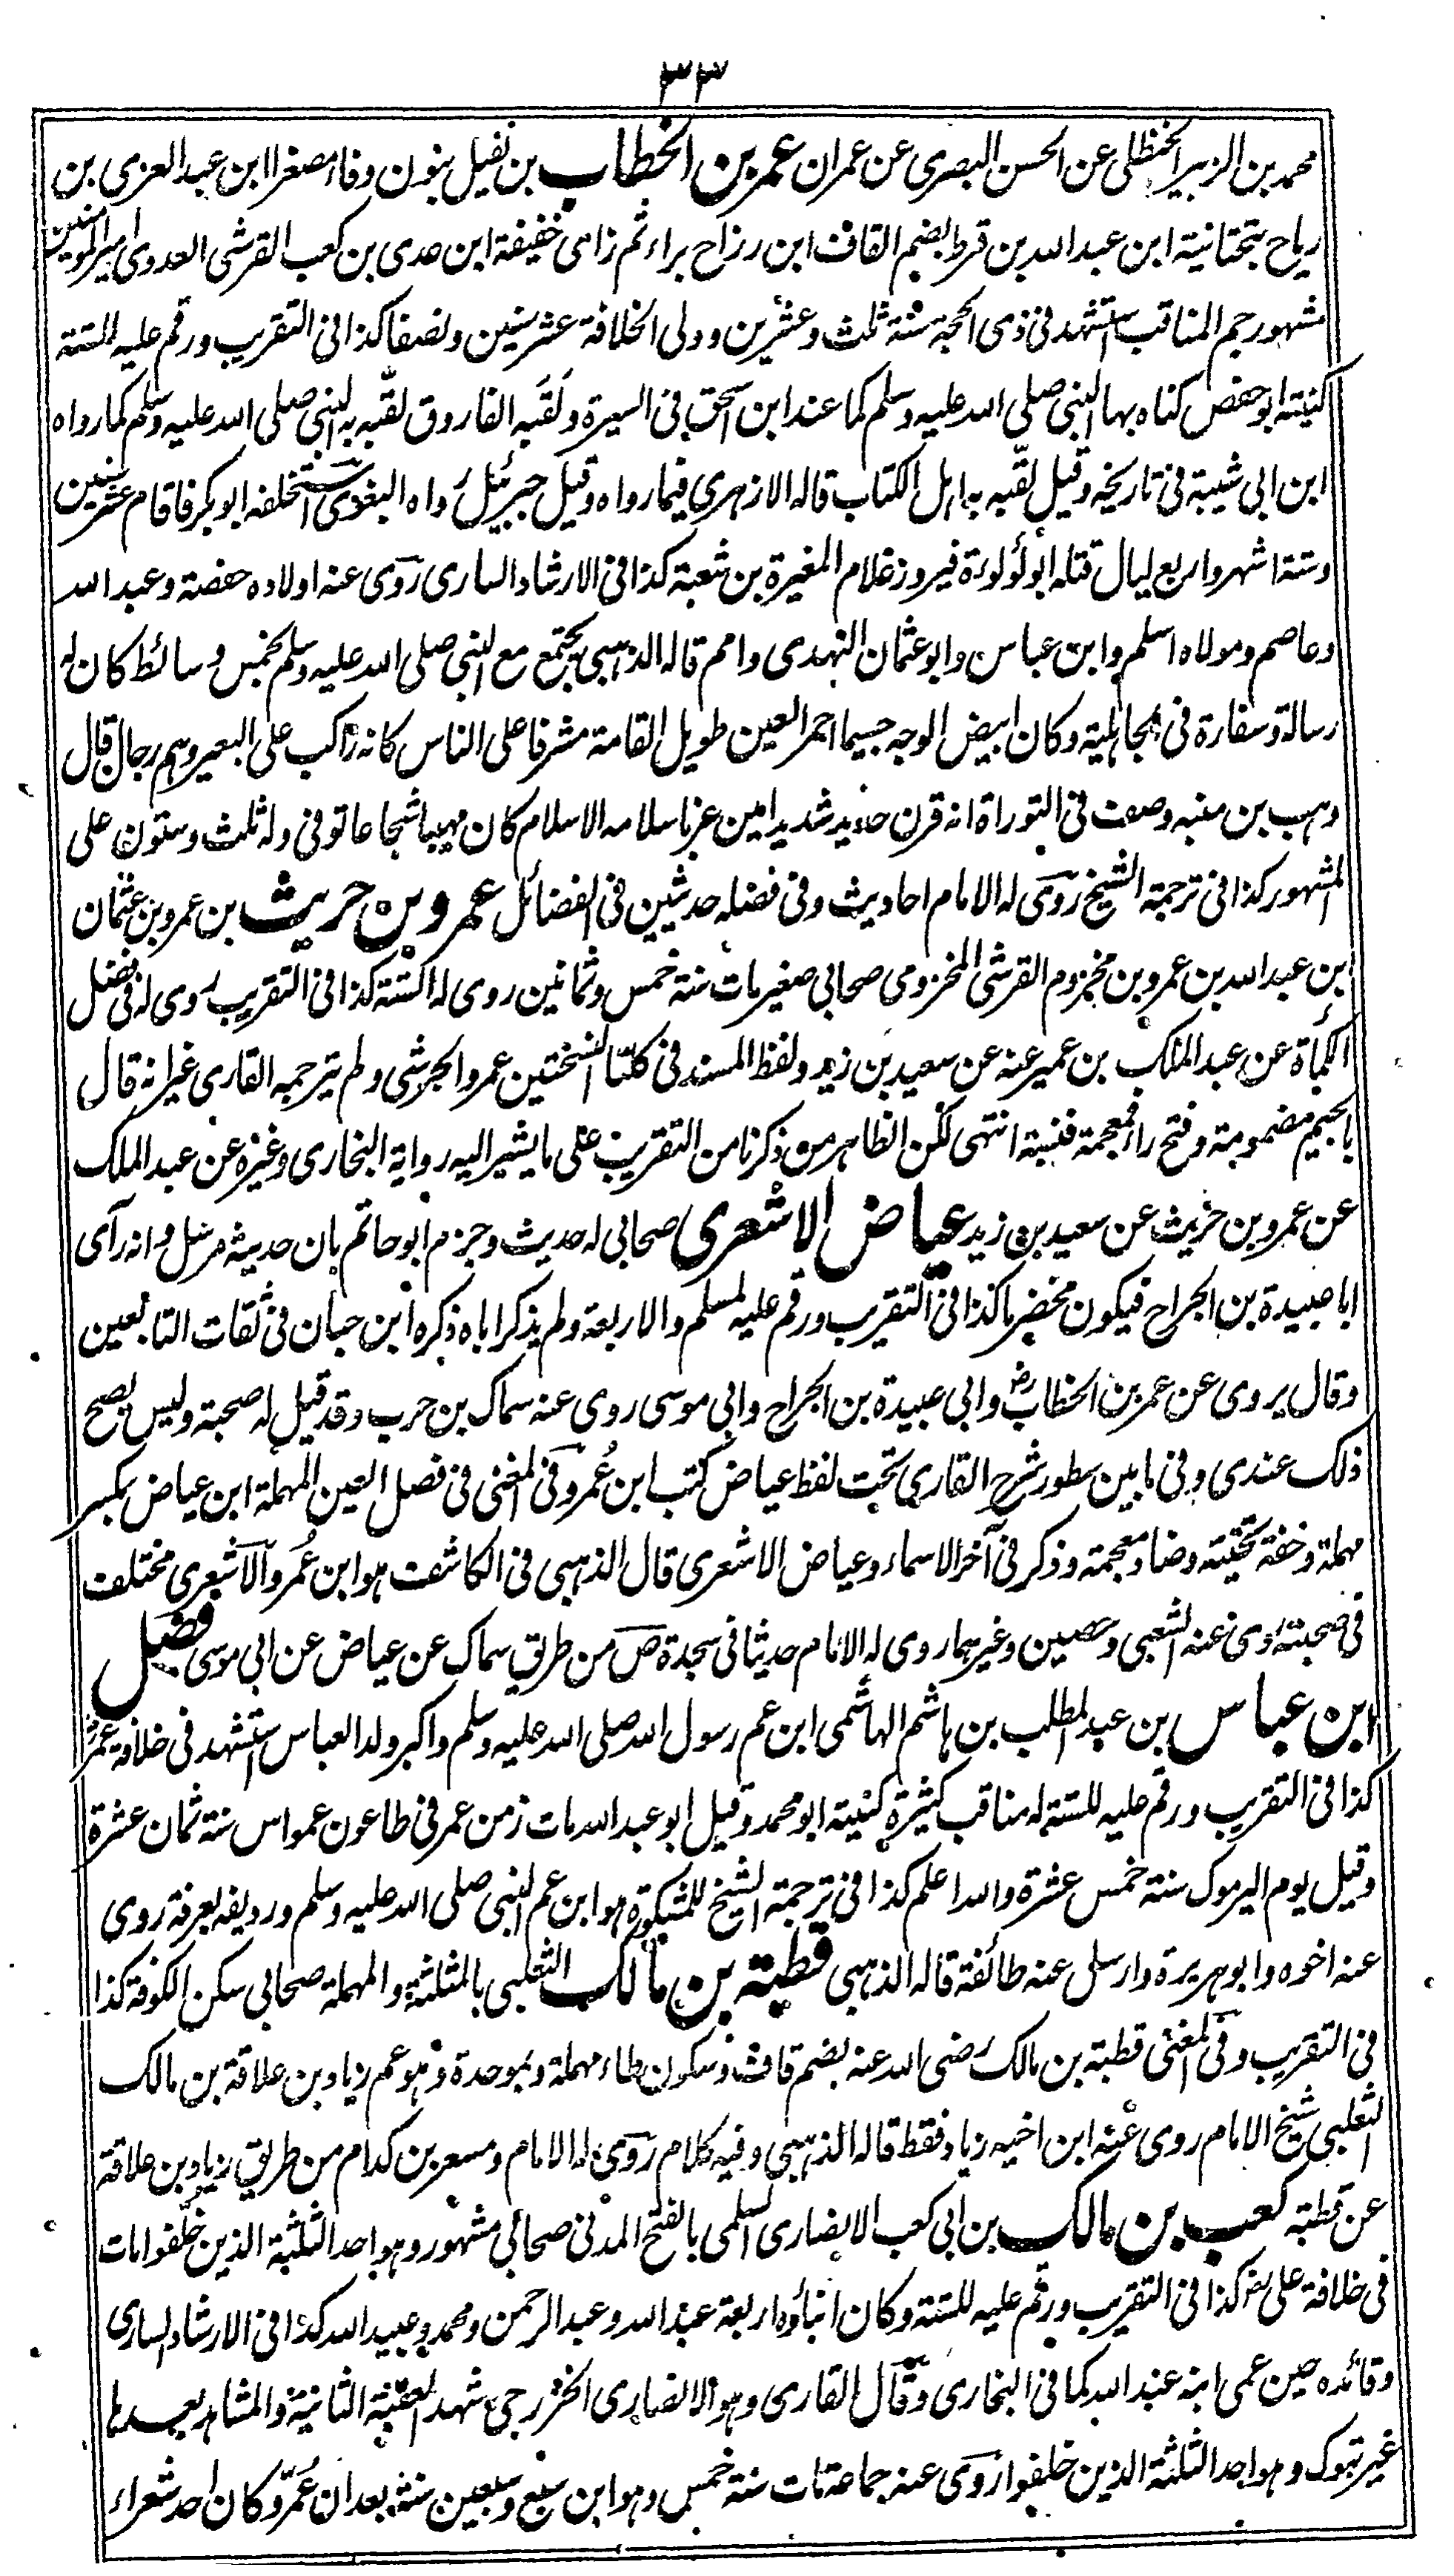 ٣٣
محمد بن الزبير الحنظلى عن الحسن البصرى عن عمران عمر بن الخطاب بن نفيل بنون وفاء مصغرا ابن عبد العزى بن
رياح بتحتانية ابن عبد الله بن قرط بضم القاف ابن رزاح براء ثم زاى خفيفة ابن عدى بن كعب القرشى العدوى امير المؤمنين
مشهور جم المناقب استشهد فى ذى الحجة سنة ثلث وعشرين وولى الخلافة عشر سنين ونصفا كذا فى التقريب ورقم عليه للستة
كنيته ابو حفص كناه بها النبى صلى الله عليه وسلم كما عند ابن اسحق فى السيرة ولقبه الفاروق لقبه به النبى صلى الله عليه وسلم كما رواه
ابن ابى شيبة فى تاريخه وقيل لقبه به اهل الكتاب قاله الازهرى فيما رواه وقيل جبرئيل رواه البغوى استخلفه ابو بكر فاقام عشر سنين
وستة اشهر واربع ليال قتله ابو لؤلؤة فيروز غلام المغيرة بن شعبة كذا فى الارشاد السارى روى عنه اولاده حفصة وعبد الله
وعاصم ومولاه اسلم وابن عباس وابو عثمان النهدى وامم قاله الذهبى يجتمع مع النبى صلى الله عليه وسلم بخمس وسائط كان له
رسالة وسفارة فى الجاهلية وكان ابيض الوجه جسيما احمر العين طويل القامة مشرفا على الناس كانه راكب على البعير وهم رجال قال
وهب بن منبه وصفت فى التوراة انه قرن حديد شديد امين عز باسلامه الاسلام كان مهيبا شجاعا توفى وله ثلث وستون على
المشهور كذا فى ترجمة الشيخ روى له الامام احاديث وفى فضله حديثين فى الفضائل عمرو بن حريث بن عمرو بن عثمان
ابن عبد الله بن عمرو بن مخزوم القرشى المخزومى صحابى صغير مات سنة خمس وثمانين روى له الستة كذا فى التقريب روى له فى فضل
الكمأة عن عبد الملك بن عمير عنه عن سعيد بن زيد ولفظ المسند فى كلتا النسختين عمرو الجرشى ولم يترجمه القارى غير انه قال
بالجيم مضمومة وفتح راء فمعجمة فنسبة انتهى لكن الظاهر من ذكرنا من التقريب على ما يشير اليه رواية البخارى وغيره عن عبد الملك
عن عمرو بن حريث عن سعيد بن زيد عياض الاشعرى صحابى له حديث وجزم ابو حاتم بان حديثه مرسل وانه رآى
ابا عبيدة بن الجراح فيكون مخضرما كذا فى التقريب ورقم عليه لمسلم والاربعة ولم يذكر اباه ذكره ابن حبان فى ثقات التابعين
وقال يروى عن عمر بن الخطاب رض وابى عبيدة بن الجراح وابى موسى روى عنه سماك بن حرب وقد قيل له صحبة وليس يصح
ذلك عندى وفى ما بين سطور شرح القارى تحت لفظ عياض كتب ابن عمرو فى المغنى فى فصل العين المهملة ابن عياض بكسر
مهملة وخفة تحتية وضاد معجمة وذكر فى آخر الاسماء وعياض الاشعرى قال الذهبى فى الكاشف هو ابن عمرو الاشعرى مختلف
فى صحبته روى عنه الشعبى وحصين وغيرهما روى له الامام حديثا فى سجدة ص من طريق سماك عن عياض عن ابى موسى فضل
ابن عباس بن عبد المطلب بن هاشم الهاشمى ابن عم رسول الله صلى الله عليه وسلم واكبر ولد العباس استشهد فى خلافة عمر
كذا فى التقريب ورقم عليه للستة له مناقب كثيرة كنيته ابو محمد وقيل ابو عبد الله مات زمن عمر فى طاعون عمواس سنة ثمان عشرة
وقيل يوم اليرموك سنة خمس عشرة والله اعلم كذا فى ترجمة الشيخ للمشكوة هو ابن عم النبى صلى الله عليه وسلم ورديفه بعرفة روى
عنه اخوه وابو هريرة وارسل عنه طائفة قاله الذهبى قطبة بن مالك الثعلبى بالمثلثة والمهملة صحابى سكن الكوفة كذا
فى التقريب وفى المغنى قطبة بن مالك رضى الله عنه بضم قاف وسكون طاء مهملة وبموحدة وهو عم زياد بن علاقة بن مالك
الثعلبى شيخ الامام روى عنه ابن اخيه زياد فقط قاله الذهبى وفيه كلام روى له الامام ومسعر بن كدام من طريق زياد بن علاقة
عن قطبة كعب بن مالك بن ابى كعب الانصارى السلمى بالفتح المدنى صحابى مشهور وهو احد الثلثة الذين خلفوا مات
فى خلافة على رض كذا فى التقريب ورقم عليه للستة وكان ابناؤه اربعة عبد الله وعبد الرحمن ومحمد وعبيد الله كذا فى الارشاد السارى
وقائده حين عمى ابنه عبد الله كما فى البخارى وقال القارى وهو الانصارى الخزرجى شهد العقبة الثانية والمشاهد بعدها
غير تبوك وهو احد الثلثة الذين خلفوا روى عنه جماعة مات سنة خمس وهو ابن سبع وسبعين سنة بعد ان عمر وكان احد شعراء